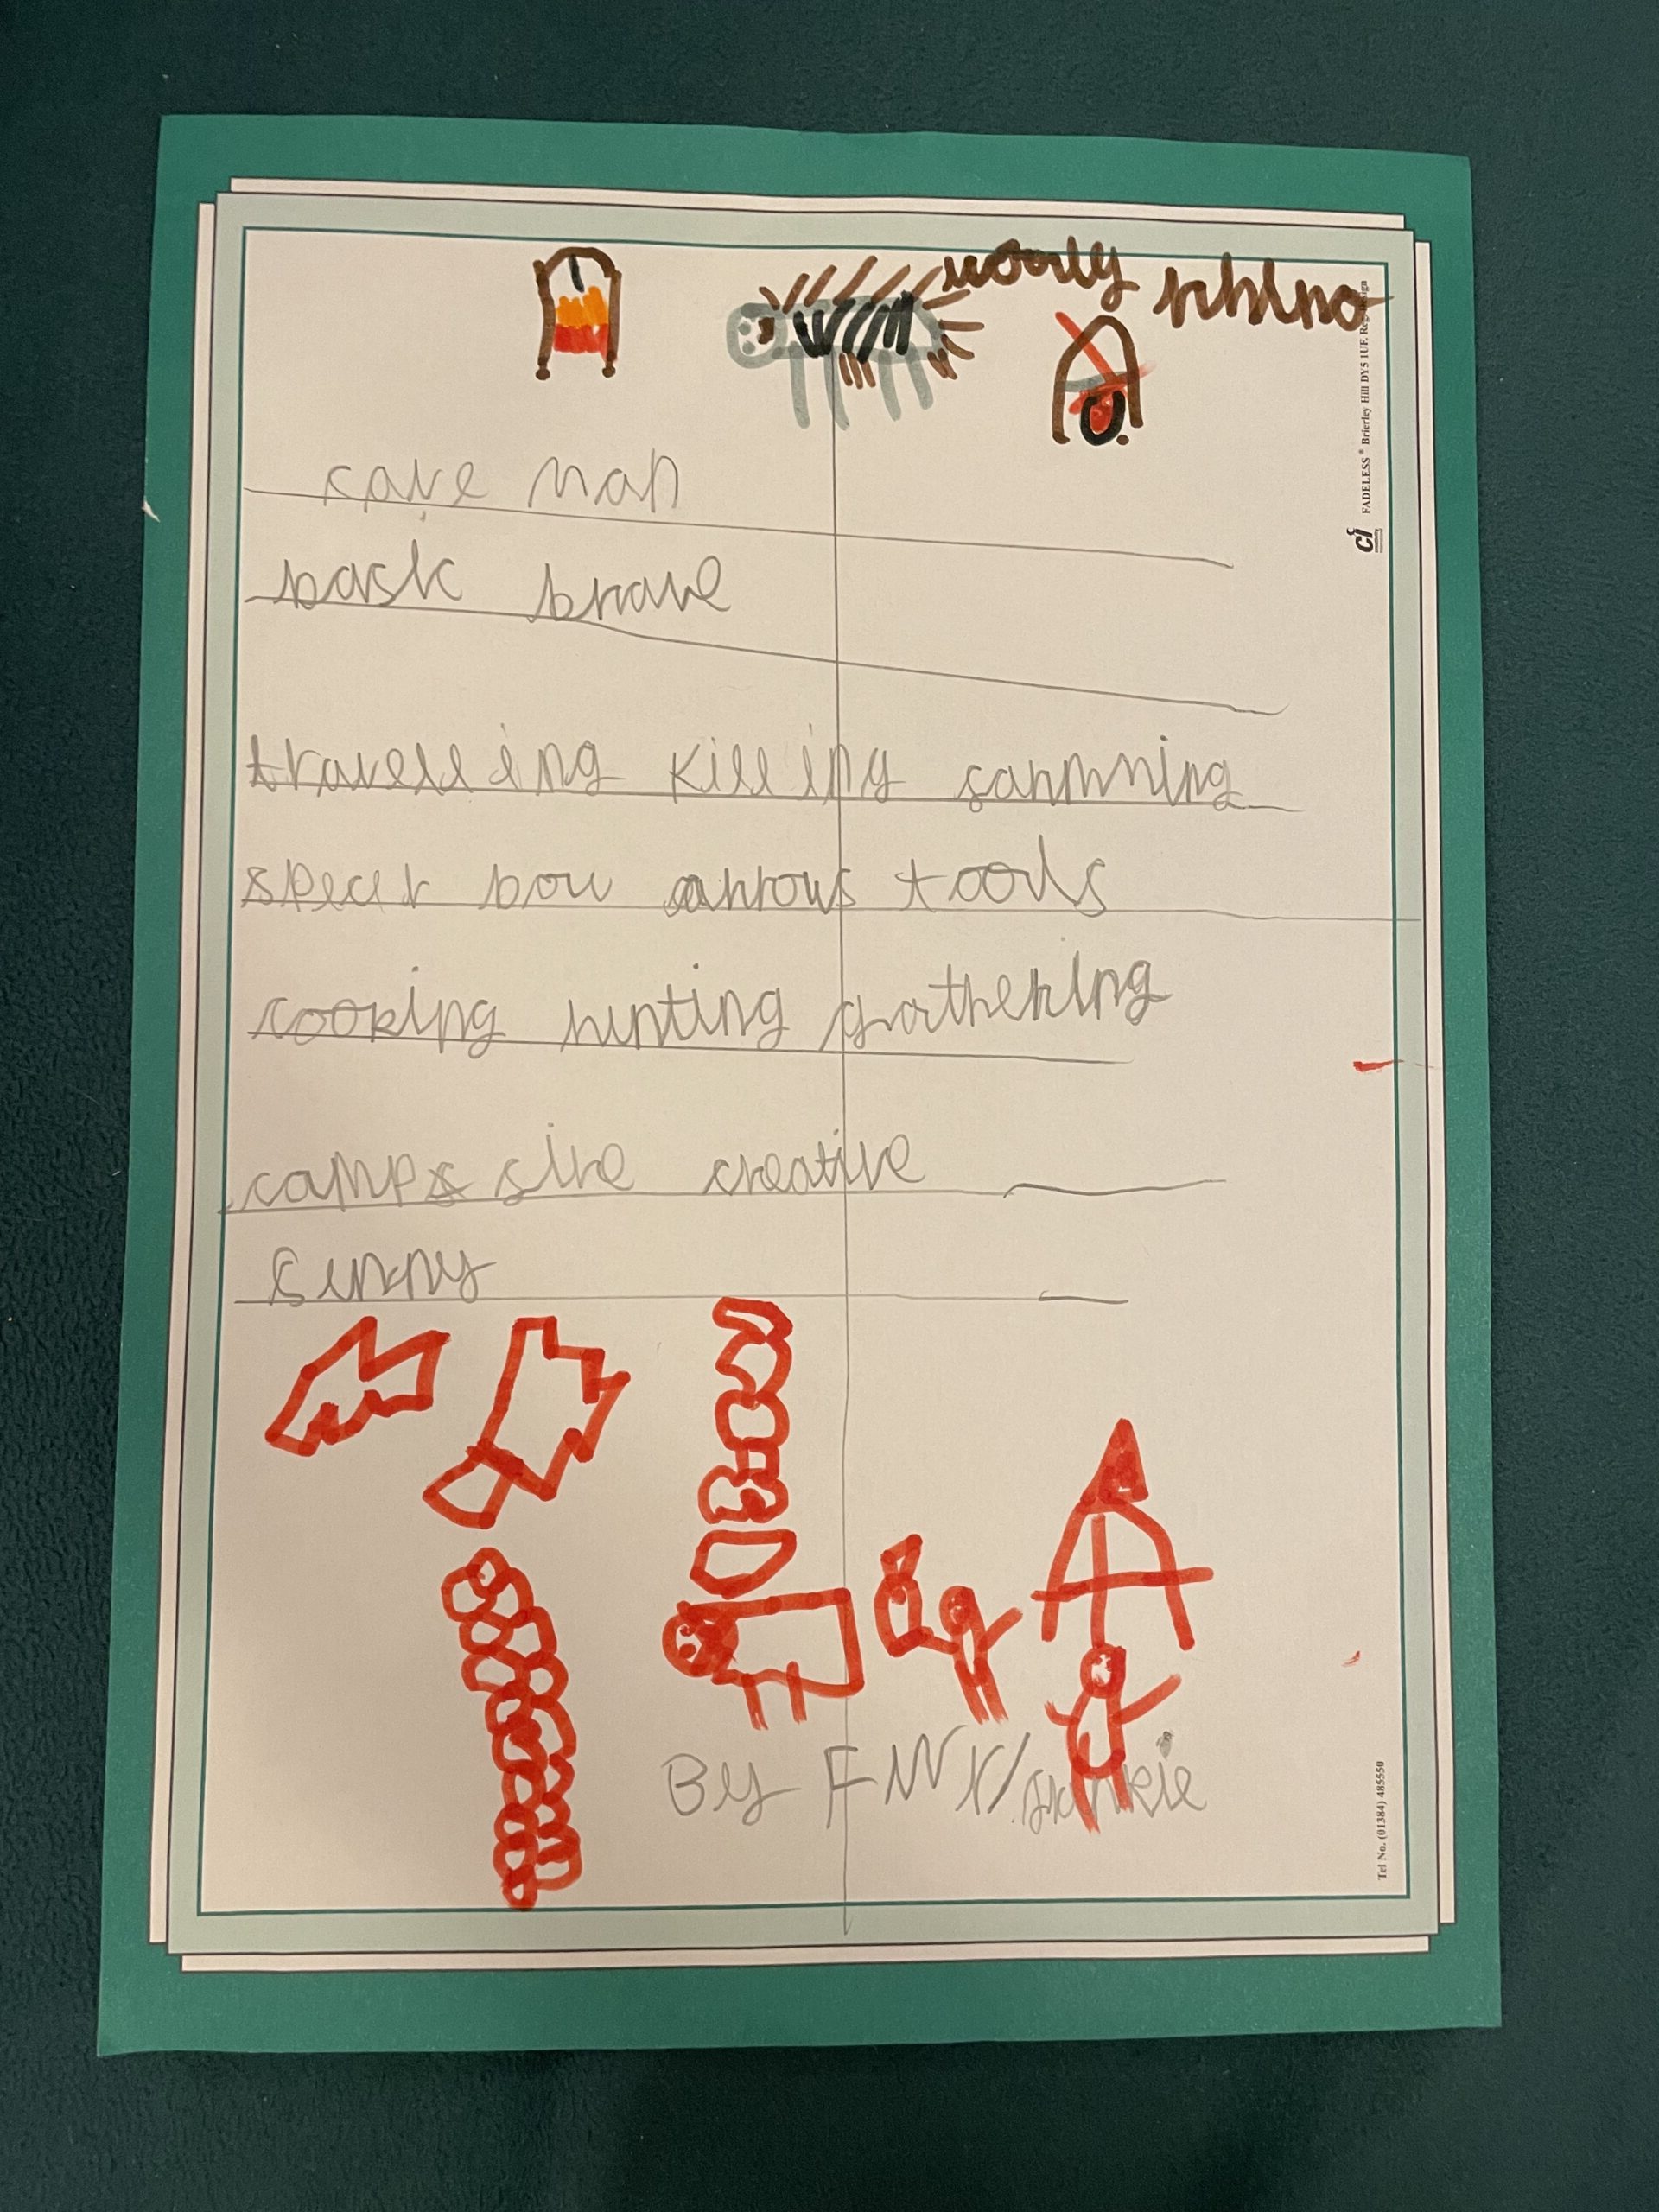 woolly rihino
cave man
bask brave
travelleing killing sanmning
spear bow arrows tools
cooking hunting gathering
camps sire creative
sunny
By FNVX/frankie
FADELESS® Brierley Hill DY5 1UF. Reg. Design
ci
Tel No. (01384) 485550